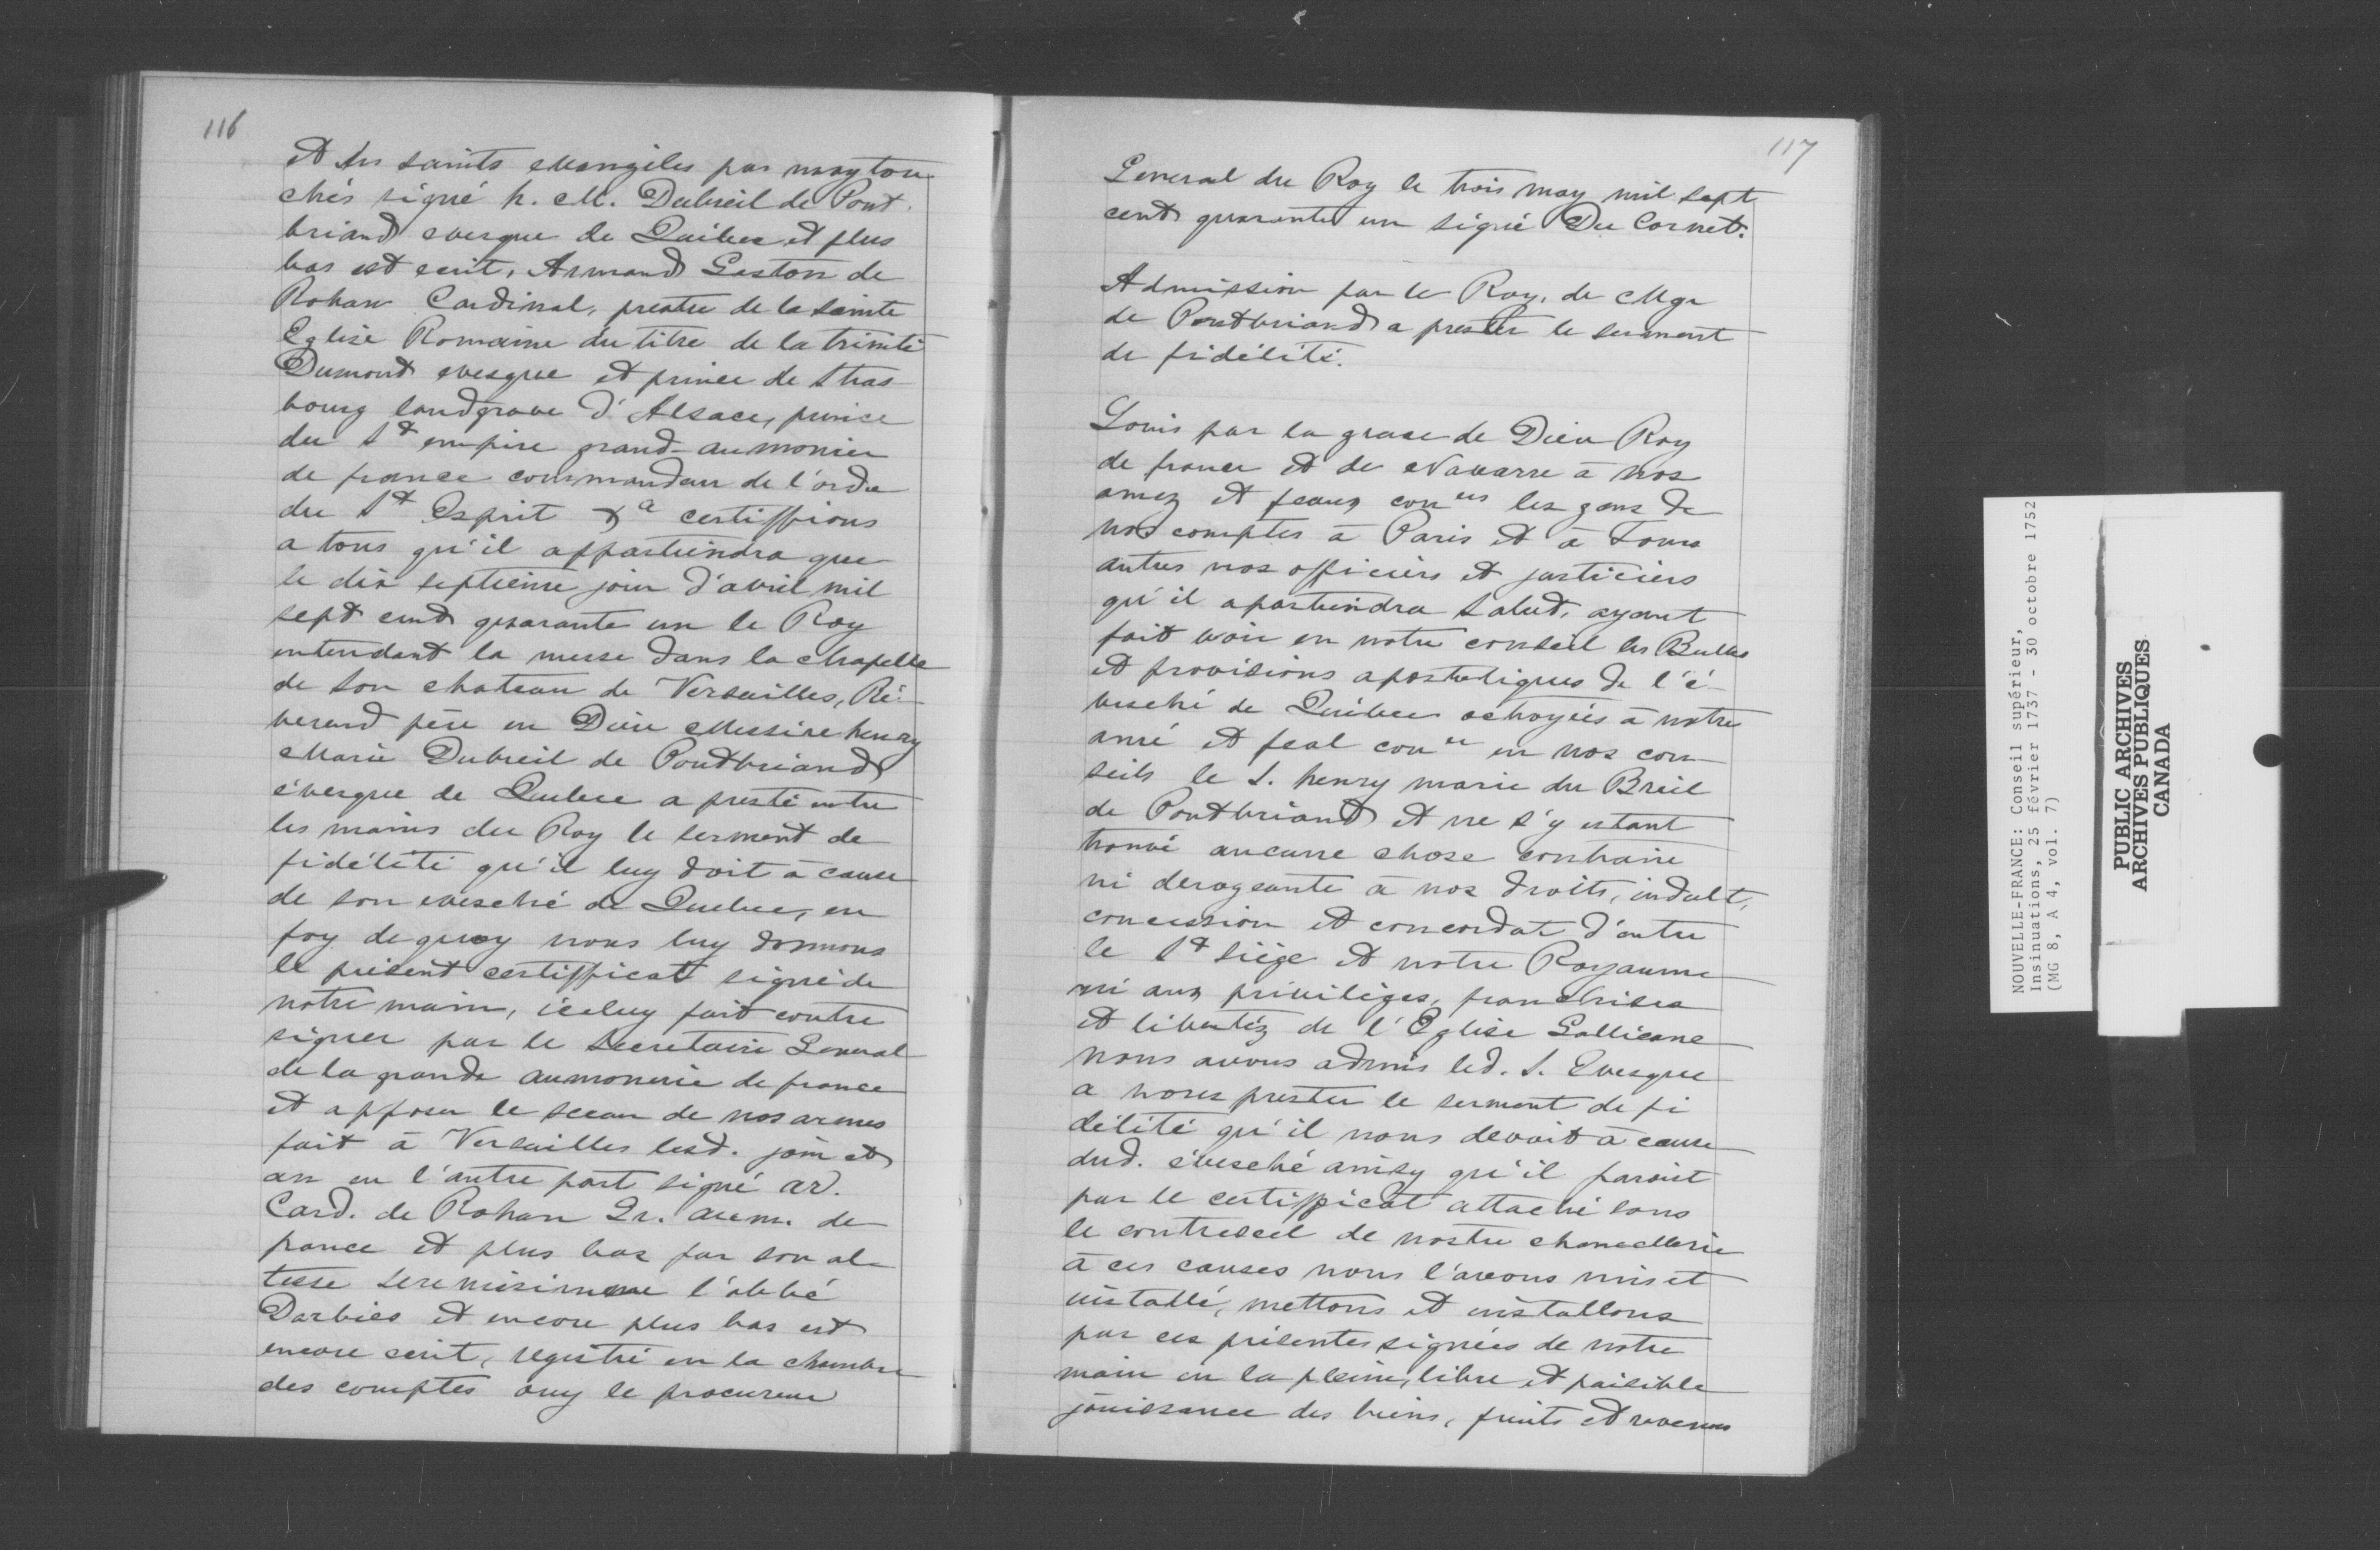 116
et les saints evangiles par moy tou-
chés signé h. M. Dubreil de Pont-
briand evesque de Québec et plus
bas est ecrit, Armand Gaston de
Rohan Cardinal, prestre de la sainte
Eglise Romaine du titre de la trinité
Dumont evesque et prince de Stras
bourg landgrave d'Alsace, prince
du St empire grand-aumonier
de france commandeur de l'ordre
du St Esprit &a certiffions
a tous qu'il appartiendra que
le dix septieme jour d'avril mil
sept cent quarante un le Roy
entendant la messe dans la chapelle
de son chateau de Versailles, Ré-
verend père en Dieu Messire henry
Marie Dubreil de Pontbriand
évesque de Quebec a presté entre
les mains du Roy le serment de
fidélité qu'il luy doit à cause
de son evesché de Quebec, en
foy de quoy nous luy donnons
le présent certifficat signé de
notre main, iceluy fait contre
signer par le Secretaire General
de la grande aumonerie de france
et apposer le sceau de nos armes
fait à Versailles lesd. jour et
an en l'autre part signé ar.
Card. de Rohan Gr. aum. de
france et plus bas par son al-
tesse serenissime l'abbé
Darbies et encore plus bas est
encore ecrit, registré en la chambre
des comptes ouy le procureur
117
General du Roy le trois may mil sept
cent quarante un signé Du Cornet.
Admission par le Roy, de Mgr
de Pontbriand a prester le serment
de fidélité.
Louis par la grace de Dieu Roy
de france et de Navarre à nos
amez et feaux coners les gens de
nos comptes à Paris et à Tous
autres nos officiers et justiciers
qu'il apartiendra Salut, ayant
fait voir en notre conseil les Bulles
et provisions apostoliques de l'é-
vesché de Québec octroyées à notre
amé et feal coner en nos con-
seils le S. henry marie du Breil
de Pontbriand et ne s'y estant
trouvé aucune chose contraire
ni derogeante à nos droits, indult,
concession et concordat d'entre
le St siège et notre Royaume
ni aux privilèges, franchises
et libertéz de l'Eglise Gallicane
nous avons admis led. S. Evesque
a nous prester le serment de fi
délité qu'il nous devoit à cause
dud. évesché ainsy qu'il paroist
par le certifficat attaché sous
le contrescel de nostre chancellerie
à ces causes nous l'avons mis et
installé, mettons et installons
par ces présentes signées de notre
main en la pleine, libre et paisible
jouissance des biens, fruits et revenus
NOUVELLE-FRANCE: Conseil supérieur,
Insinuations, 25 février 1737 - 30 octobre 1752
(MG 8, A 4, vol. 7)
PUBLIC ARCHIVES
ARCHIVES PUBLIQUES
CANADA